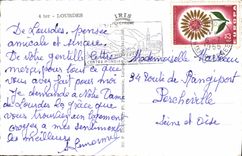 6 502 - LOURDES
De Lourdes, pensée
amicale et sincère.
De votre gentille lettre
merci, pour tout ce que
vous avez fait pour moi
Je demande à Notre Dame
de Lourdes la grâce que
vous trouviez un logement
croyez à mes sentiments
les meilleurs
Mademoiselle
94 Route de
Porcheville
Seine et Oise
EUROPA
0,25